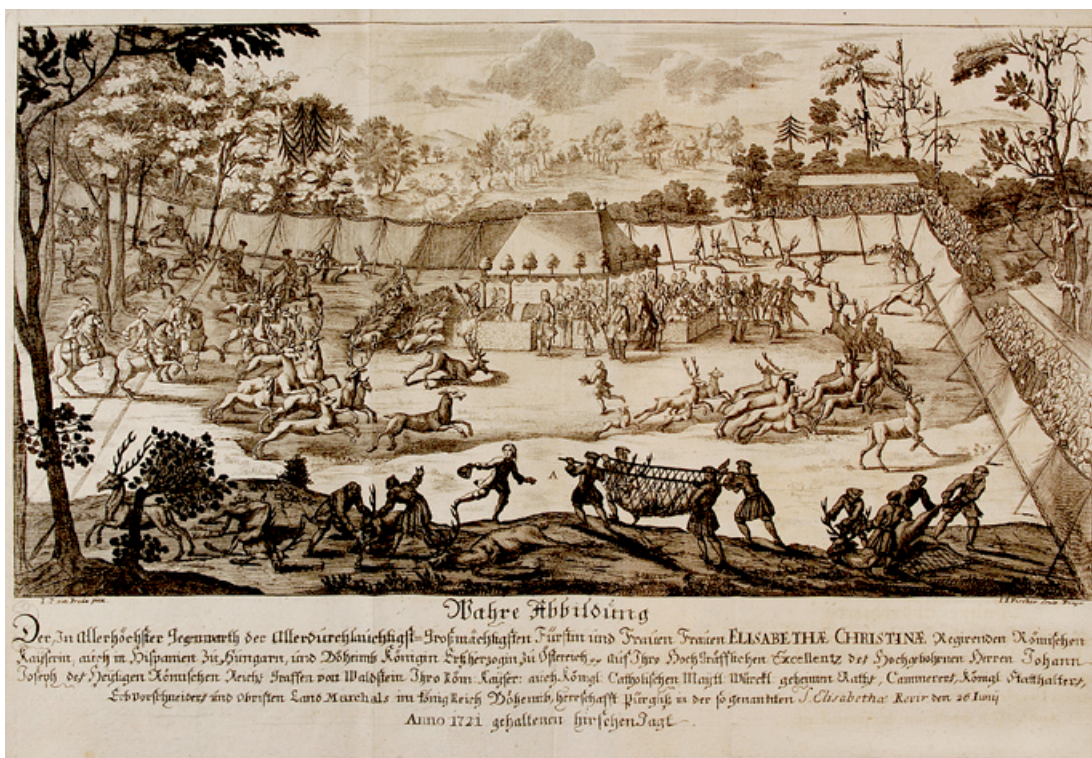 A
Wahre Abbildung
Der, In Allerhöchster Gegenwarth der Allerdurchlauchtigst-Großmächtigsten Fürstin und Frauen Frauen ELISABETHÆ CHRISTINÆ Regirenden Römischen
Kaiserin, auch in Hispanien Zu Hungarn, und Böheimb Königin Ertzherzogin zu Österreich auf Ihro Hoch Gräfflichen Excellentz des Hochgebohrnen Herren Johann
Joseph des Heyligen Römischen Reichs Graffen von Waldstein Ihro Röm: Kaiser: auch Königl: Catholischen Maytt: Würckl: geheimen Raths, Cammerers, Königl: Statthalters,
Erb Vorschneiders und Obristen Land Marchals im König Reich Böheimb, herrschafft Pürglitz in der so genandten S. Elisabethæ Revir den 26 Iunij
Anno 1721 gehaltenen hirschen Jagt